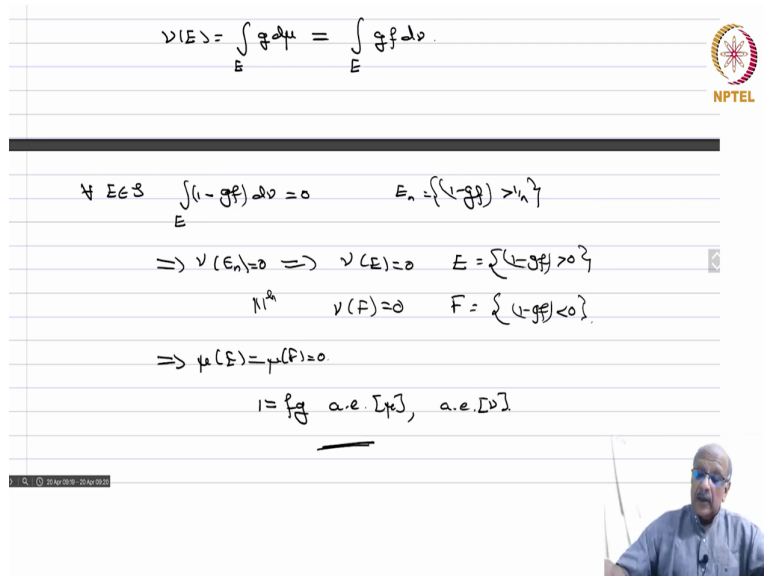 ν(E) = ∫_E g dμ = ∫_E gf dν.
NPTEL
∀ E∈S ∫_E (1-gf) dν = 0 E_n = {(1-gf) > 1/n}
⇒ ν(E_n)=0 ⇒ ν(E)=0 E = {(1-gf) > 0}
|||ly ν(F)=0 F = {(1-gf) < 0}.
⇒ μ(E) = μ(F) = 0.
1 = fg a.e. [μ], a.e. [ν].
20 Apr 09:19 - 20 Apr 09:20